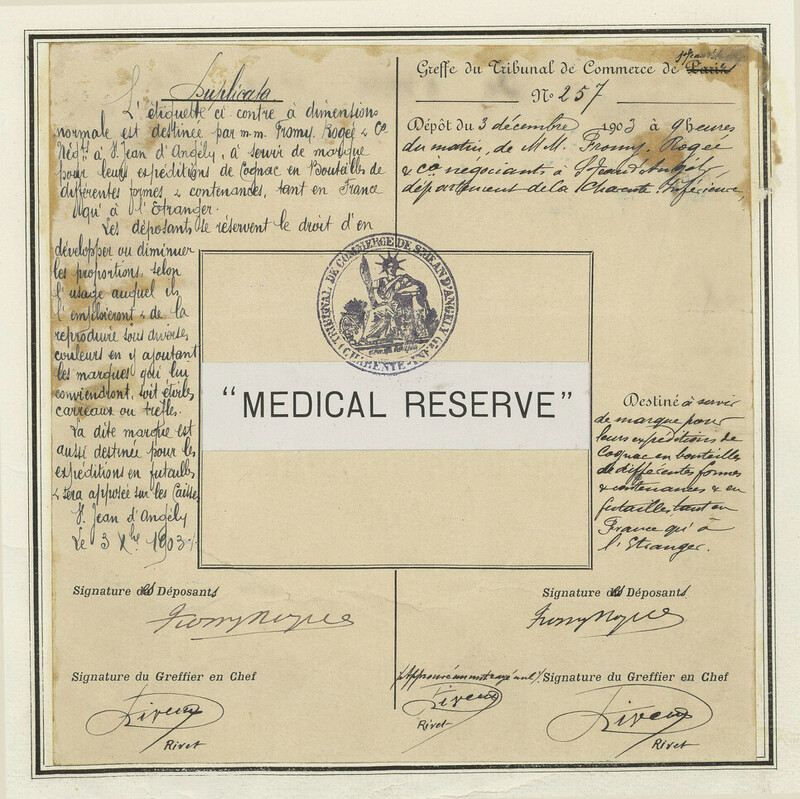 Duplicata
L'étiquette ci contre à dimensions
normale est destinée par m.m. Fromy, Rogée & Cº
Négts à St. Jean d'Angély, à servir de marque
pour leurs expéditions de Cognac en Bouteilles de
différentes formes & contenances, tant en France
qu'à l'Etranger.
Les déposants se réservent le droit d'en
développer ou diminuer
les proportions, selon
l'usage auquel ils
l'emploieront & de la
reproduire sous diverses
couleurs en y ajoutant
les marques qui lui
conviendront, soit étoiles,
carreaux ou trèfles.
La dite marque est
aussi destinée pour les
expéditions en futailles
& sera apposée sur les Caisses
St. Jean d'Angély
Le 3 Xbre 1903
Greffe du Tribunal de Commerce de Paris
Nº 257
Dépôt du 3 décembre 1903 à 9 heures
du matin, de M.M. Fromy, Rogée
& Cº négociants à St Jean d'Angély
département de la Charente Inférieure,
TRIBUNAL DE COMMERCE DE ST JEAN D'ANGELY
(CHARENTE-INFRE)
"MEDICAL RESERVE"
Destiné à servir
de marque pour
leurs expéditions de
Cognac en bouteilles
de différentes formes
& contenances & en
futailles tant en
France qu'à
l'Etranger.
Signature des Déposants
Signature des Déposants
Signature du Greffier en Chef
Signature du Greffier en Chef
Rivet
Rivet
Rivet